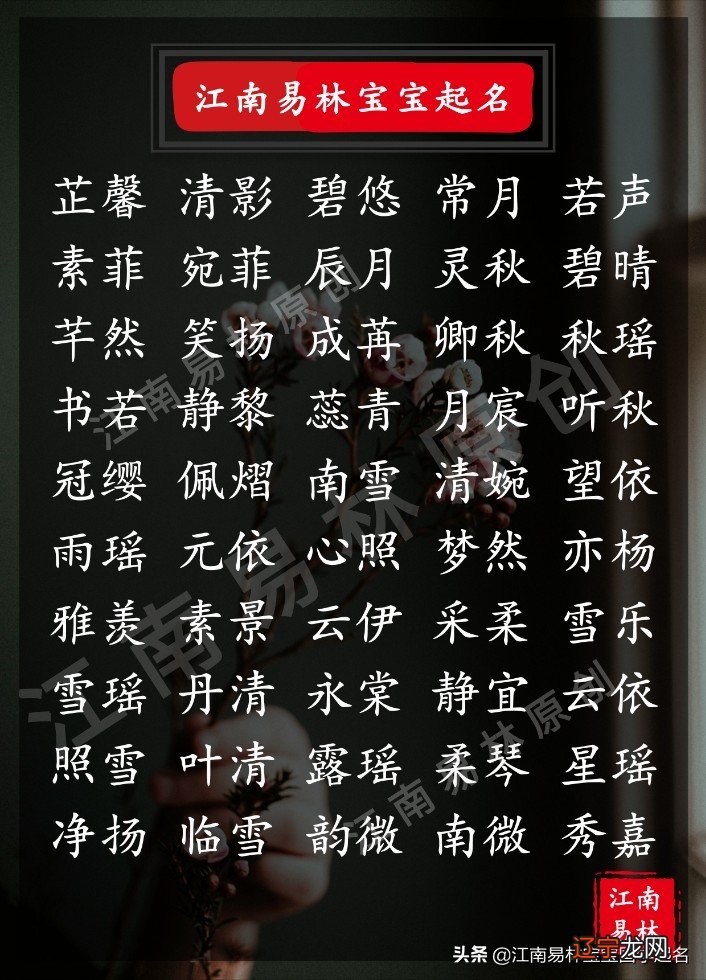 江南易林宝宝起名
芷馨 清影 碧悠 常月 若声
素菲 宛菲 辰月 灵秋 碧晴
芊然 笑扬 成苒 卿秋 秋瑶
书若 静黎 蕊青 月宸 听秋
冠缨 佩熠 南雪 清婉 望依
雨瑶 元依 心照 梦然 亦杨
雅羡 素景 云伊 采柔 雪乐
雪瑶 丹清 永棠 静宜 云依
照雪 叶清 露瑶 柔琴 星瑶
净扬 临雪 韵微 南微 秀嘉
江南易林原创
江南易林原创
江南易林原创
江南
易林
辽宁龙网
头条 @江南易林宝宝
起名